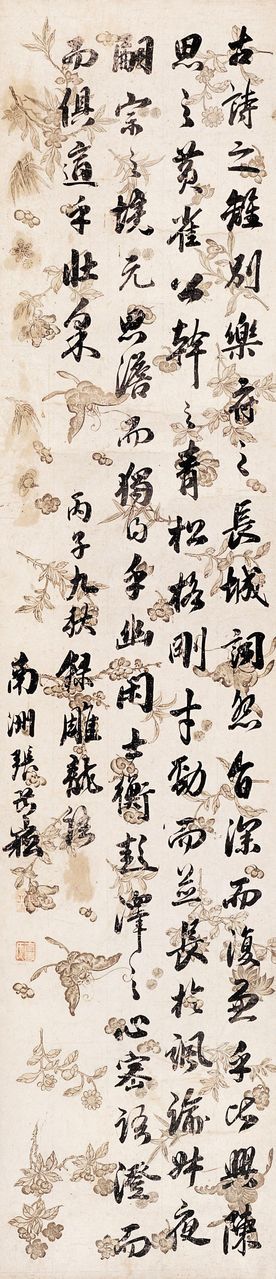 古詩之離別樂府之長城詞怨旨深而復兼乎比興陳
思之黃雀公幹之青松格剛才勁而並長於諷諭叔夜
嗣宗之境元思澹而獨得乎幽閑士衡彭澤之心密語澄而
而俱適乎壯采 丙子九秋錄雕龍語
南洲張岳崧